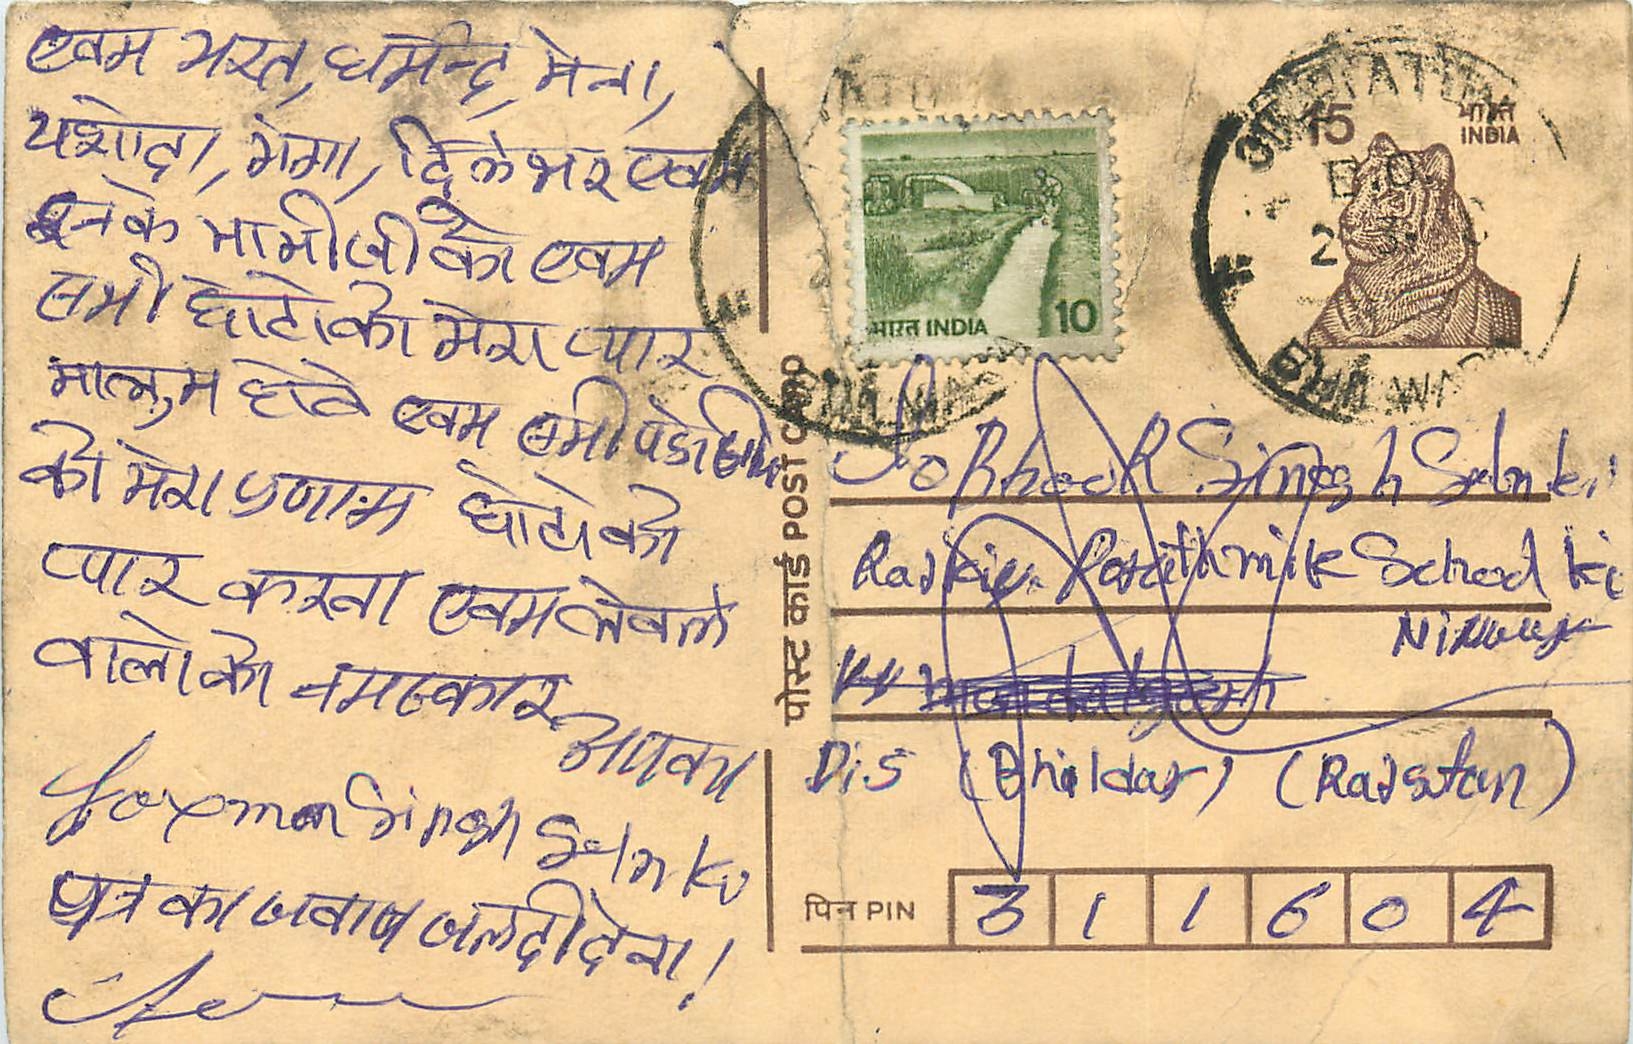 एवम भरत, धर्मेन्द्र, मेना,
यशोदा, गंगा, दिलेभर एवम
उनके मामीजी को एवम
सभी छोटो को मेरा प्यार
मालुम होवे एवम सभी
को मेरा प्रणाम छोटो को
प्यार करना एवम लेवले
वालो को नमस्कार
आपका
Laxman Singh Solnki
पत्र का जवाब जलदी देना!
पोस्ट कार्ड POST CARD
भारत INDIA 10
15 भारत INDIA
B.O.
BHILWARA
To Bhook Singh Solnki
Rajkiy Parathmik School ki
Dis (Bhildar) (Rajstan)
पिन PIN 311604